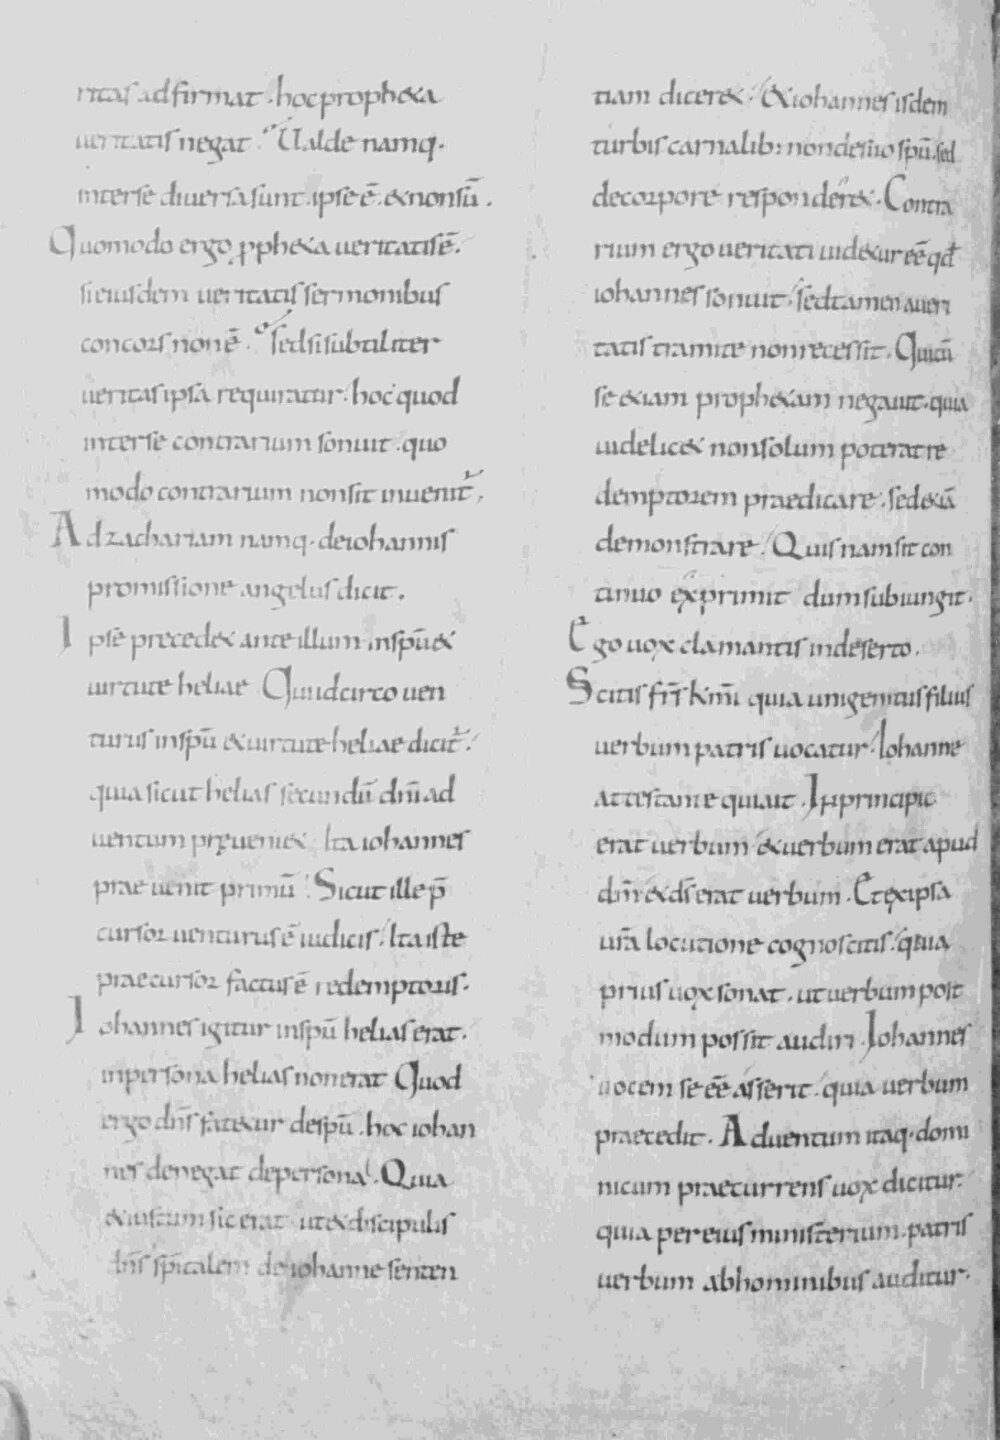 ritas adfirmat . hoc propheta
ueritatis negat . Ualde namq·
inter se diuersa sunt . ipse ē . & non sū .
Quomodo ergo ꝓpheta ueritatis ē .
si eiusdem ueritatis sermonibus
concors non ē . sed si subtiliter
ueritas ipsa requiratur . hoc quod
inter se contrarium sonuit . quo
modo contrarium non sit inuenit᷑ .
Ad zachariam namq· de iohannis
promissione angelus dicit .
Ipse precedet ante illum in spū et
uirtute heliae Qui idcirco uen
turus in spū & uirtute heliae dicit᷑ .
quia sicut helias secundū dn̄i ad
uentum pręueniet . Ita iohannes
praeuenit primū . Sicut ille p̄
cursor uenturus ē iudicis . Ita iste
praecursor factus ē redemptoris .
Iohannes igitur in spū helias erat .
in persona helias non erat Quod
ergo dn̄s fatetur de spū . hoc iohan
nes denegat de persona . Quia
& iustum sic erat ut & discipulis
dn̄s spitalem de iohanne senten
tiam diceret . & iohannes isdem
turbis carnalib: non de suo spū . sed
de corpore responderet . Contra
rium ergo ueritati uidetur eē qđ
iohannes sonuit . sed tamen a ueri
tatis tramite non recessit . Qui cū
se etiam prophetam negauit . quia
uidelicet non solum poterat re
demptorem praedicare . sed etiā
demonstrare . Quis nam sit con
tinuo exprimit dum subiungit .
Ego uox clamantis in deserto .
Scitis fr̄s km̄i quia unigenitus filius
uerbum patris uocatur . Iohanne
attestante qui ait . In principio
erat uerbum & uerbum erat apud
dm̄ & ds̄ erat uerbum . Et ex ipsa
ur̄a locutione cognoscitis . quia
prius uox sonat . ut uerbum post
modum possit audiri . Iohannes
uocem se eē asserit . quia uerbum
praecedit . Aduentum itaq· domi
nicum praecurrens uox dicitur .
quia per eius ministerium . patris
uerbum ab hominibus auditur .